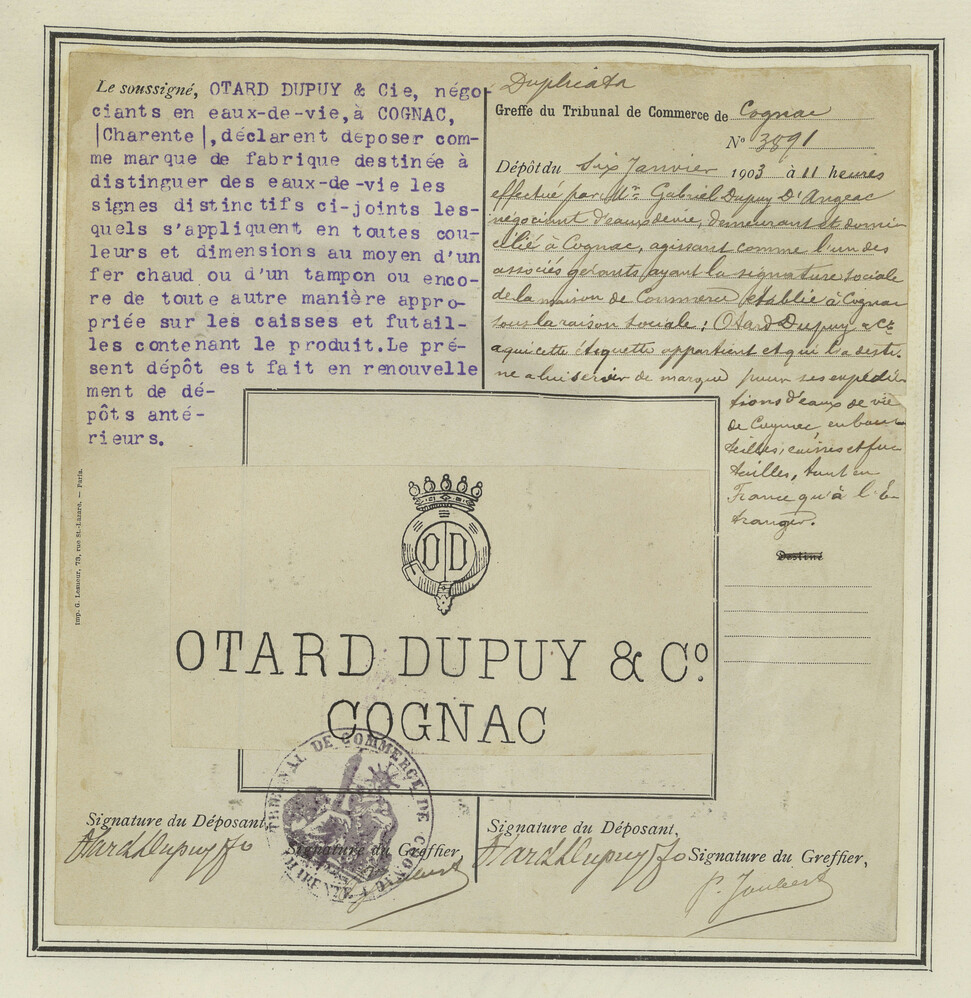 Le soussigné, OTARD DUPUY & Cie, négo-
ciants en eaux-de-vie, à COGNAC,
|Charente|, déclarent déposer com-
me marque de fabrique destinée à
distinguer des eaux-de-vie les
signes distinctifs ci-joints les-
quels s'appliquent en toutes cou-
leurs et dimensions au moyen d'un
fer chaud ou d'un tampon ou enco-
re de toute autre manière appro-
priée sur les caisses et futail-
les contenant le produit. Le pré-
sent dépôt est fait en renouvelle
ment de dé-
pôts anté-
rieurs.
Duplicata
Greffe du Tribunal de Commerce de Cognac
N° 3891
Dépôt du six Janvier 1903 à 11 heures
effectué par Mr Gabriel Dupuy D'Angeac
négociant d'eaux de vie, demeurant et domi-
cilié à Cognac, agissant comme l'un des
associés gérants ayant la signature sociale
de la maison de Commerce établie à Cognac
sous la raison sociale : Otard Dupuy & Cie
à qui cette étiquette appartient et qui l'a desti-
née à lui servir de marque pour ses expédi-
tions d'eaux de vie
de Cognac en bou-
teilles, caisses et fu-
tailles, tant en
France qu'à l'É-
tranger.
Destiné
Imp. G. Lesueur, 73, rue St-Lazare. — Paris.
OD
OTARD DUPUY & Co.
COGNAC
TRIBUNAL DE COMMERCE DE COGNAC
CHARENTE
Signature du Déposant,
Otard Dupuy & Co
Signature du Greffier,
Signature du Déposant,
Otard Dupuy & Co
Signature du Greffier,
P. Joubert